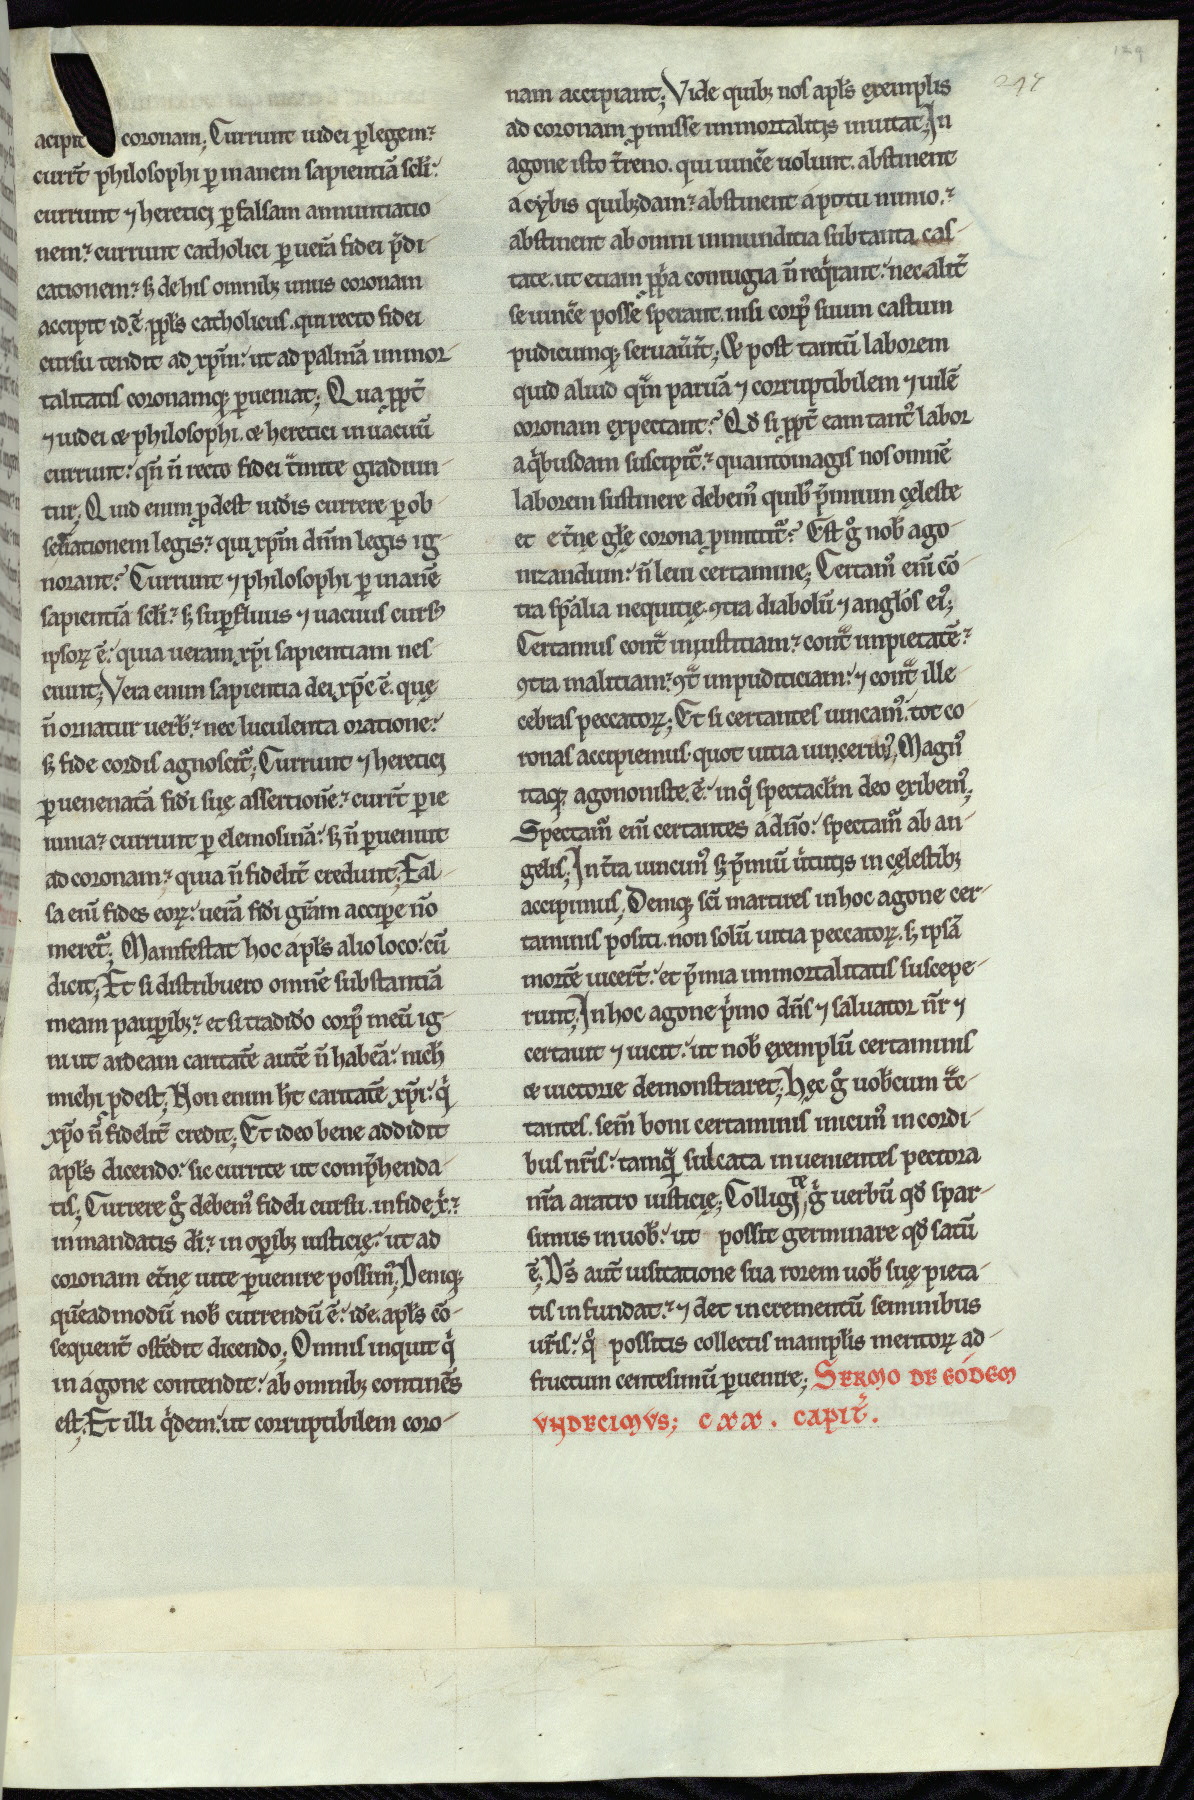 129
247
acipit coronam; Currunt iudei ꝑ legem:
currt̄ philosophi ꝑ inanem sapientiā scl̄i:
currunt ⁊ heretici ꝑ falsam annuntiatio
nem: currunt catholici ꝑ uerā fidei p̄di-
cationem: sꝫ de his omnibꝫ unus coronam
accipit id.ē. ppl̄s catholicus. qui recto fidei
cursu tendit ad xp̄m: ut ad palmā inmor-
talitatis coronamqꝫ ꝑueniat; Qua ꝓpt̄
⁊ iudei & philosophi. & heretici in uacuū
currunt: qn̄ n̄ recto fidei t̄mite gradiun-
tur; Quid enim ꝓdest iud̄is currere ꝑ ob-
seruationem legis: qui xp̄m dn̄m legis ig-
norant? Currunt ⁊ philosophi ꝑ inanē
sapientiā scl̄i: sꝫ suꝑfluus ⁊ uacuus cursꝰ
ipsoꝝ ē: quia ueram xp̄i sapientiam nes-
ciunt; Vera enim sapientia dei xp̄c ē. quę
n̄ ornatur uerb̄: nec luculenta oratione:
sꝫ fide cordis agnoscit᷑; Currunt ⁊ heretici
ꝑ uenenatā fid̄i suę assertionē: currt̄ ꝑ ie-
iunia: currunt ꝑ elemosinā: sꝫ n̄ ꝑueniut
ad coronam: quia n̄ fidelit̄ credunt; Fal-
sa enī fides eoꝝ: uerā fid̄i gr̄am accipe n̄o
meret᷑; Manifestat hoc apl̄s alio loco: cū
dicit; Et si distribuero omnē substantiā
meam pauꝑibꝫ: et si tradido corpꝰ meū ig-
ni ut ardeam caritatē autē n̄ habeā: nich̄
michi ꝓdest; Non enim h̄t caritatē xp̄i: qⁱ
xp̄o n̄ fidelit̄ credit; Et ideo bene addidit
apl̄s dicendo: sic currite ut comp̄henda-
tis; Currere gͦ debemꝰ fideli cursu. in fide x̄:
in mandatis di: in oꝑibꝫ iusticię: ut ad
coronam et̄nę uite ꝑuenire possimꝰ; Deniqꝫ
quēadmodū nob̄ currendū ē: idē. apl̄s cō-
sequent̄ ostēdit dicendo; Omnis inquit qⁱ
in agone contendit: ab omnibꝫ continēs
est; Et illi qⁱdem: ut corruptibilem coro-
nam accipiant; Vide quibꝫ nos apl̄s exemplis
ad coronam ꝓmisse inmortalitatis inuitat; In
agone isto t̄reno. qui uincē uolunt. abstinent
a cybis quibꝫdam: abstinent a potu nimio:
abstinent ab omni inmunditia sub tanta cas-
tate. ut etiam ppⁱa coniugia n̄ reqⁱrant: nec alit̄
se uincē posse sperant. nisi corpꝰ suum castum
pudicumqꝫ seruauīt; & post tantū laborem
quid aliud qᵃm paruā ⁊ corruptibilem ⁊ uilē
coronam expectant? Qd̄ si ꝓpt̄ eam tantꝰ labor
a qⁱbusdam suscipit᷑: quantomagis nos omnē
laborem sustinere debemꝰ quibꝰ p̄mium cęleste
et et̄nę glę corona ꝓmittit᷑? Est gͦ nob̄ ago-
nizandum: n̄ leui certamine; Certamꝰ enī cō-
tra spⁱalia nequitię. ꝯtra diabolū ⁊ angl̄os eiꝰ;
Certamus contᵃ iniustitiam: contᵃ inpietatē:
ꝯtra malitiam: ꝯtᵃ inpuditiciam: ⁊ contᵃ ille-
cebras peccatoꝝ; Et si certantes uincamꝰ: tot co-
ronas accipiemus. quot uitia uincerimꝰ; Magnꝰ
itaqꝫ agononiste. ē: in qͦ spectaclm̄ deo exibemꝰ;
Spectam᷑ enī certantes a dn̄o: spectam᷑ ab an-
gelis; In t̄ra uincimꝰ sꝫ p̄miū uⁱtutis in cęlestibꝫ
accipimus; Deniqꝫ sc̄i martires in hoc agone cer-
taminis positi. non solū uitia peccatoꝝ. sꝫ ipsā
mortē uicert̄: et p̄mia inmortalitatis suscepe-
runt; In hoc agone pⁱmo dn̄s ⁊ saluator nr̄ ⁊
certauit ⁊ uicit: ut nob̄ exemplū certaminis
& uictorie demonstraret; Hęc gͦ uobcum tᵃc-
tantes. sem̄ boni certaminis inicimꝰ in cordi-
bus nr̄is: tamqᵃ sulcata inuenientes pectora
nr̄a aratro iusticię; Colligite gͥ uerbū qd̄ spar-
simus in uob̄: ut possit germinare qd̄ satū
ē; Ds̄ autē uisitatione sua rorem uob̄ suę pieta-
tis infundat: ⁊ det incrementū seminibus
ur̄is: qͦ possitis collectis maniplis meritoꝝ ad
fructum centesimū ꝑuenire; SERMO DE EODEM
VNDECIMVS; CXX. CAPIT̄.